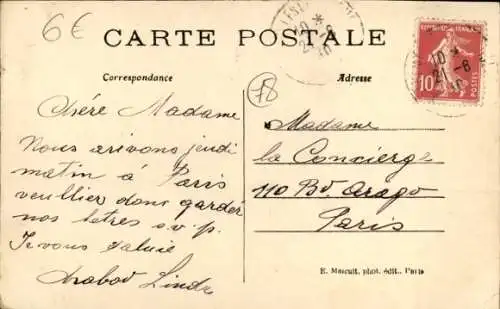 6€
CARTE POSTALE
Correspondance
Adresse
10
POSTES
Chère Madame
Nous arivons jeudi
matin à Paris
veullier donc garder
nos letres s.v.p.
Je vous salue
Madame
la Concierge
110 Bd. Arago
Paris
E. Mascuit, phot. édit., Paris